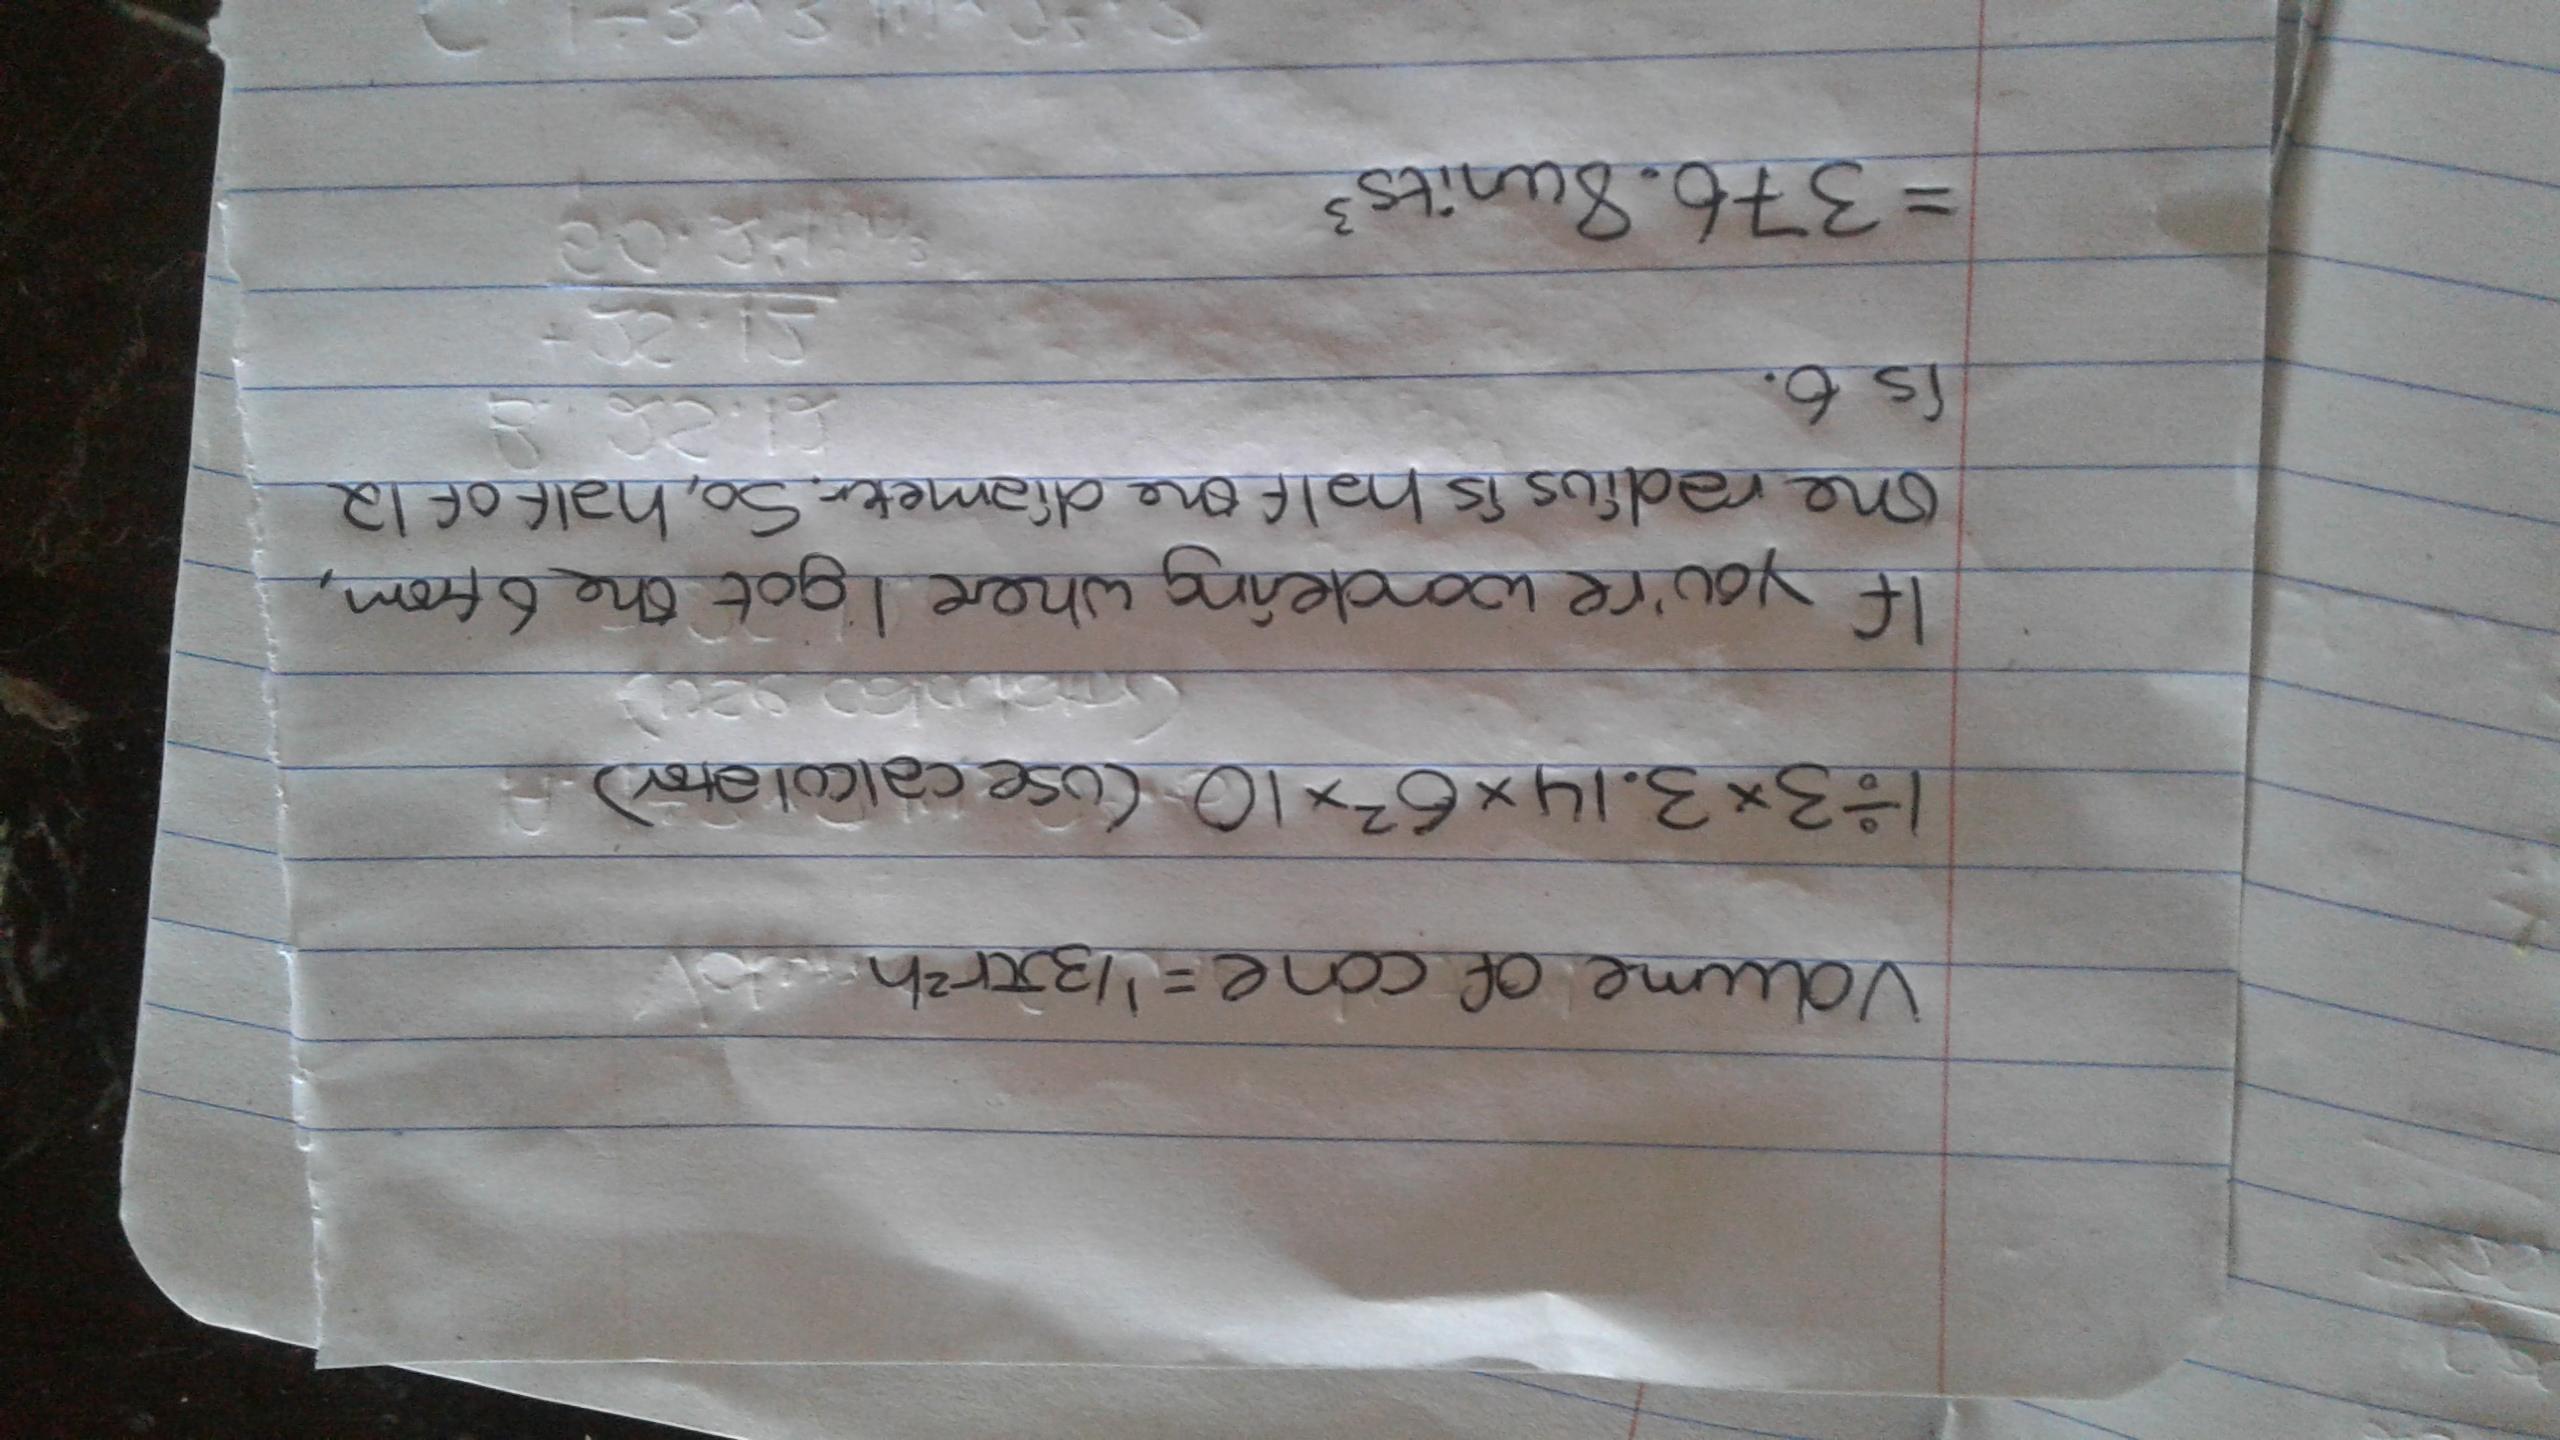 Volume of cone = 1/3πr²h
1÷3×3.14×6²×10 (use calculator)
If you're wondering where I got the 6 from,
the radius is half the diametr. So, half of 12
is 6.
= 376.8units³